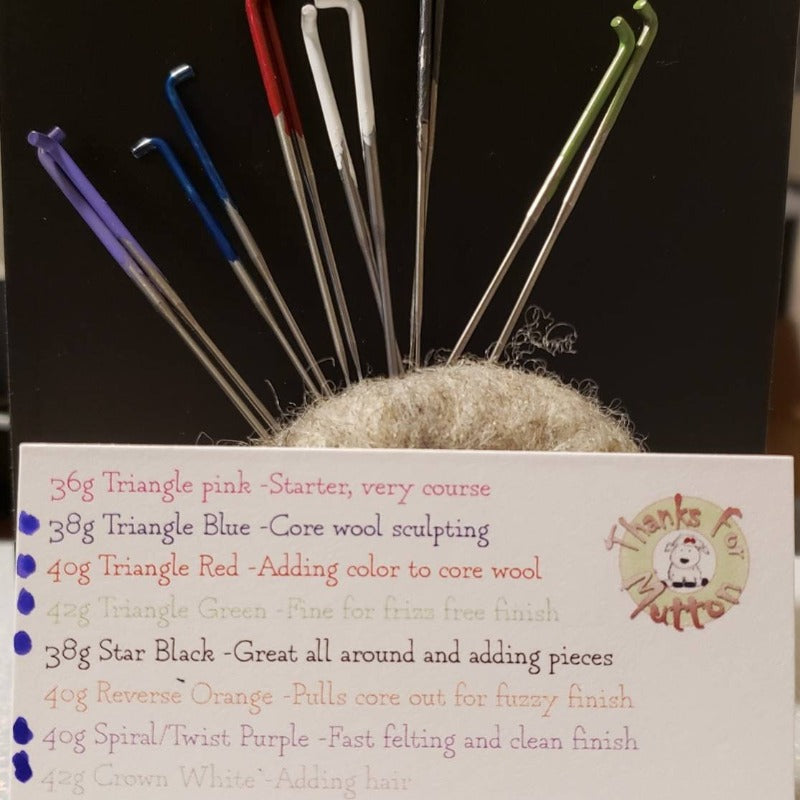 36g Triangle pink -Starter, very course
38g Triangle Blue -Core wool sculpting
40g Triangle Red -Adding color to core wool
42g Triangle Green -Fine for frizz free finish
38g Star Black -Great all around and adding pieces
40g Reverse Orange -Pulls core out for fuzzy finish
40g Spiral/Twist Purple -Fast felting and clean finish
42g Crown White -Adding hair
Thanks For
Mutton